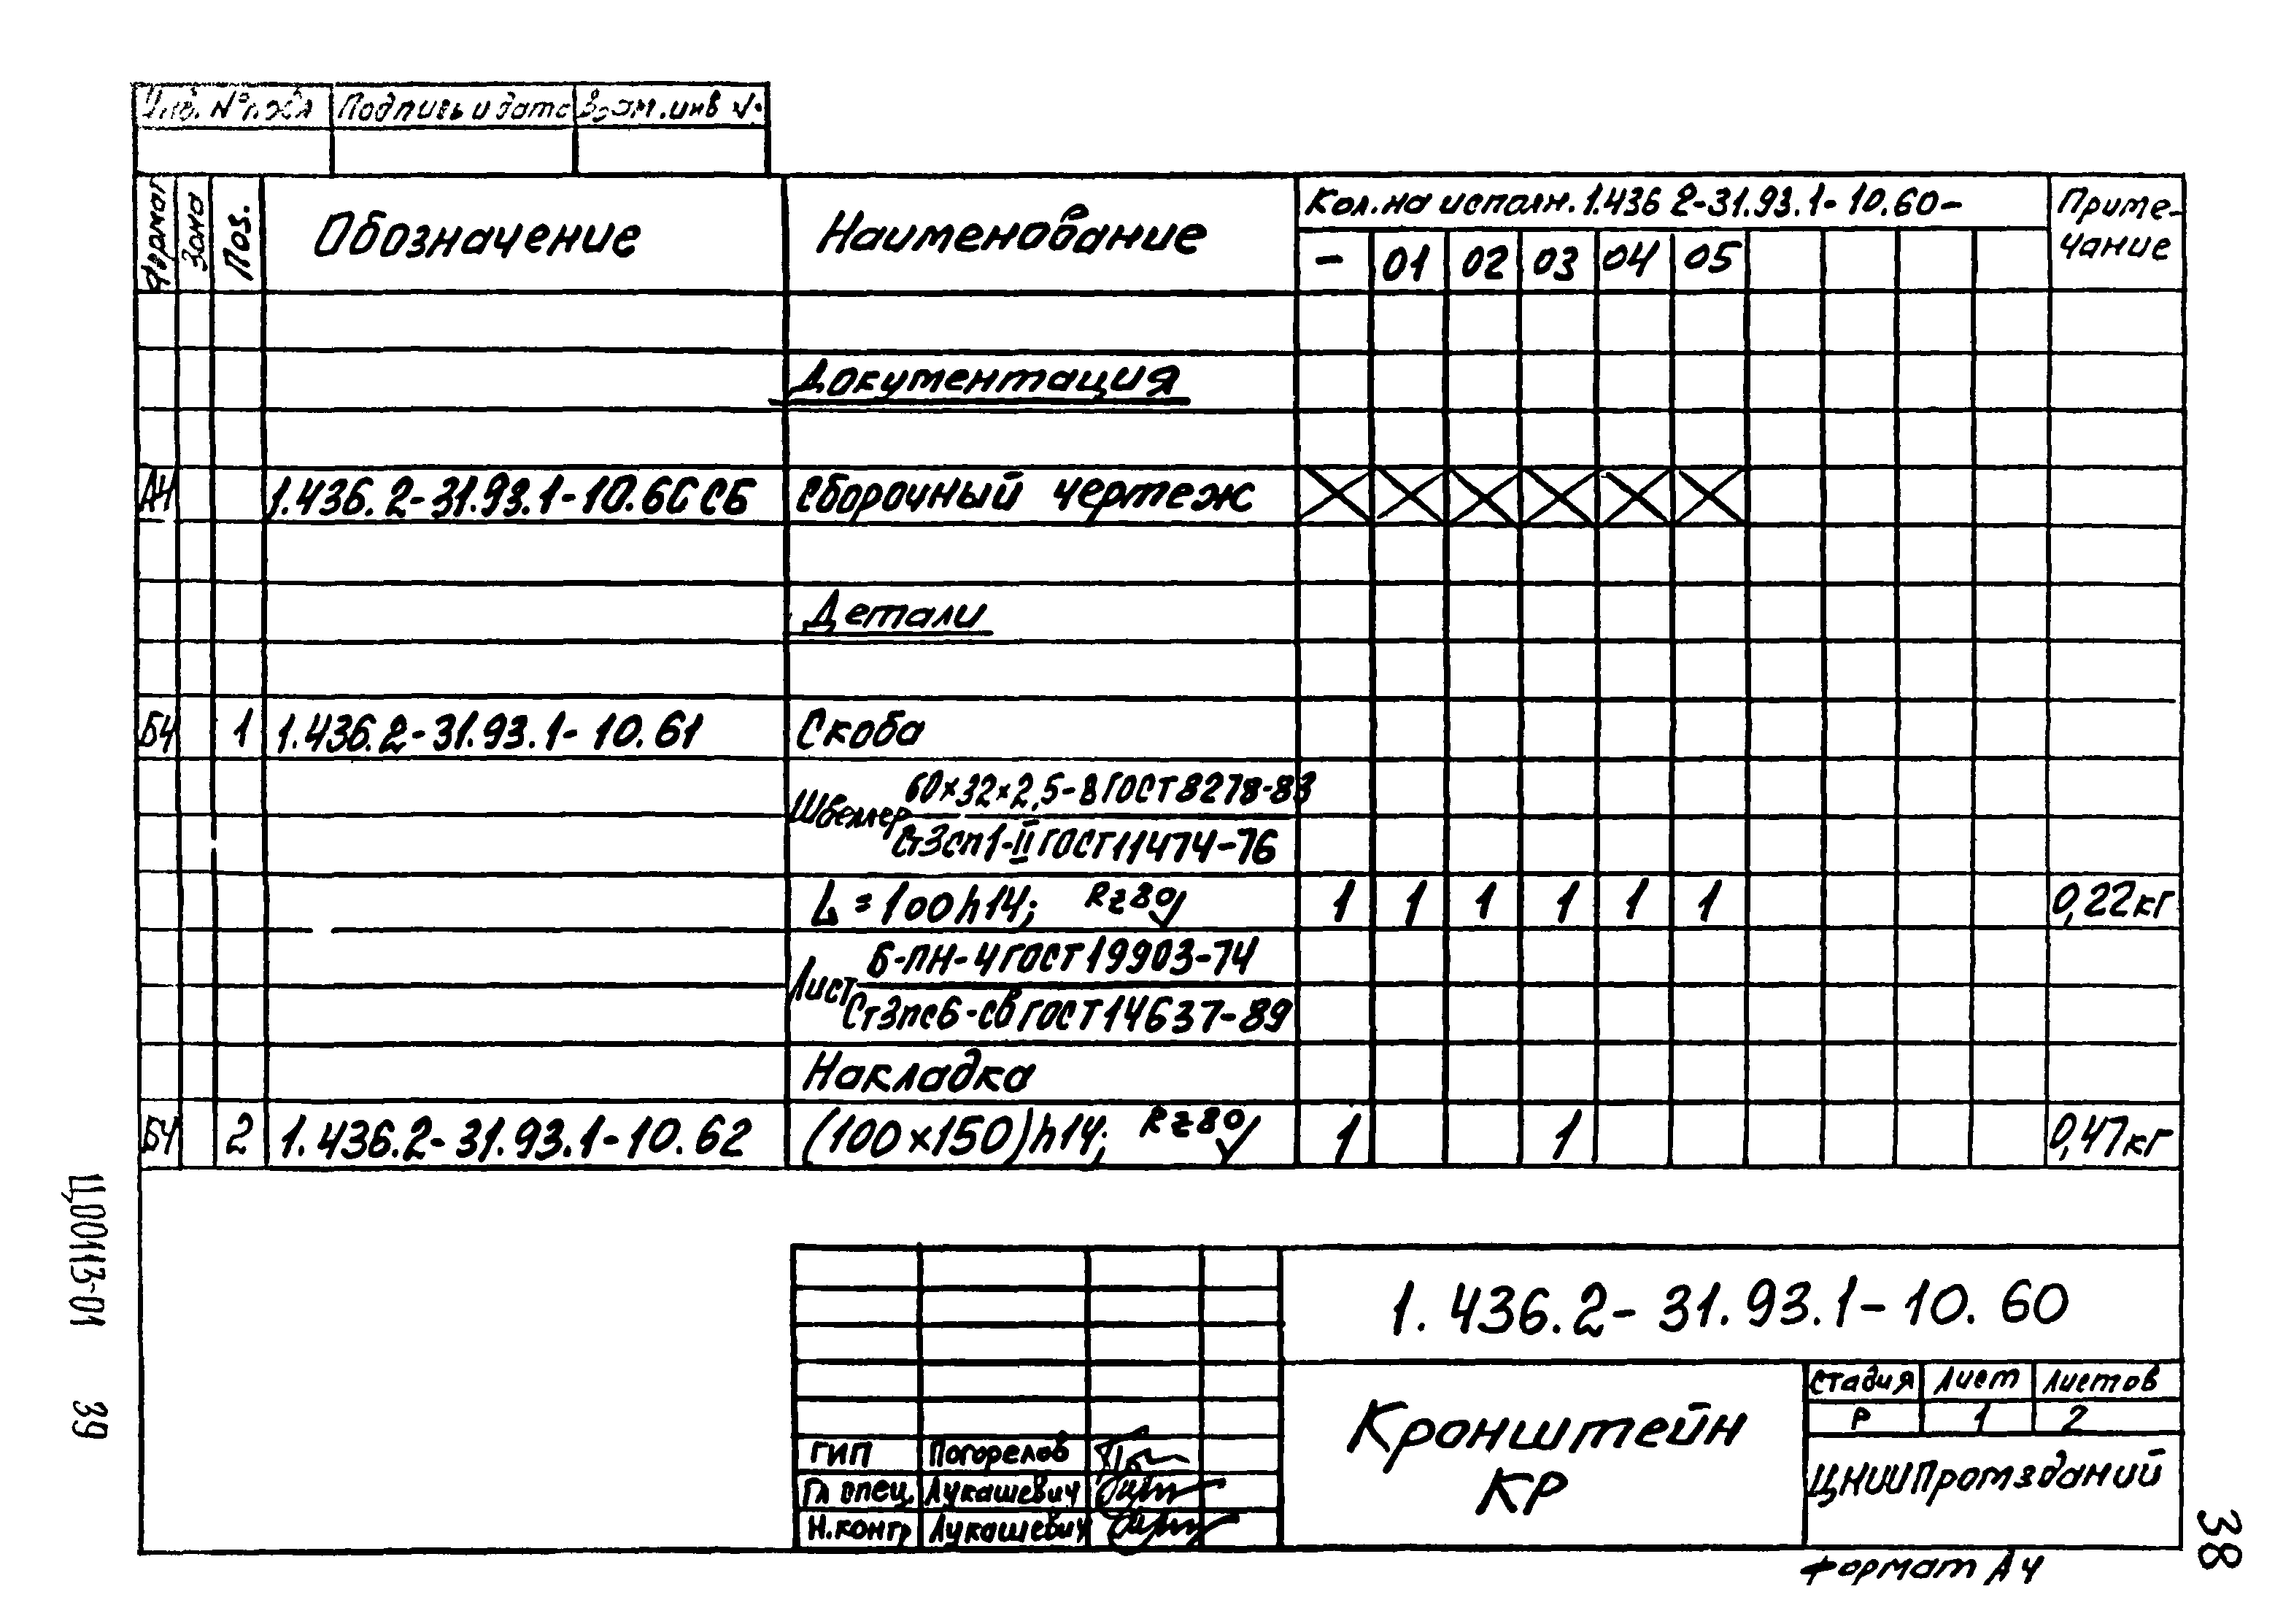 Инв. № подл Подпись и дата Взам. инв №
Формат Зона Поз. Обозначение Наименование Кол. на исполн. 1.436 2-31.93.1-10.60- Приме-
чание
- 01 02 03 04 05
Документация
А4 1.436.2-31.93.1-10.60 СБ Сборочный чертеж
Детали
Б4 1 1.436.2-31.93.1-10.61 Скоба
Швеллер 60×32×2,5-В ГОСТ 8278-83
Ст3сп1-II ГОСТ 11474-76
L=100h14; Rz80 1 1 1 1 1 1 0,22кг
Лист Б-ПН-4 ГОСТ 19903-74
Ст3пс6-св ГОСТ 14637-89
Накладка
Б4 2 1.436.2-31.93.1-10.62 (100×150)h14; Rz80 1 1 0,47кг
1.436.2-31.93.1-10.60
Кронштейн
КР
Стадия Лист Листов
Р 1 2
ЦНИИПромзданий
ГИП Погорелов
Гл спец. Лукашевич
Н.контр Лукашевич
Формат А4
Ц00113-01 39
38